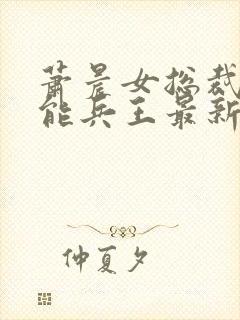 萧晨女总裁
能兵王最新
仲夏夕